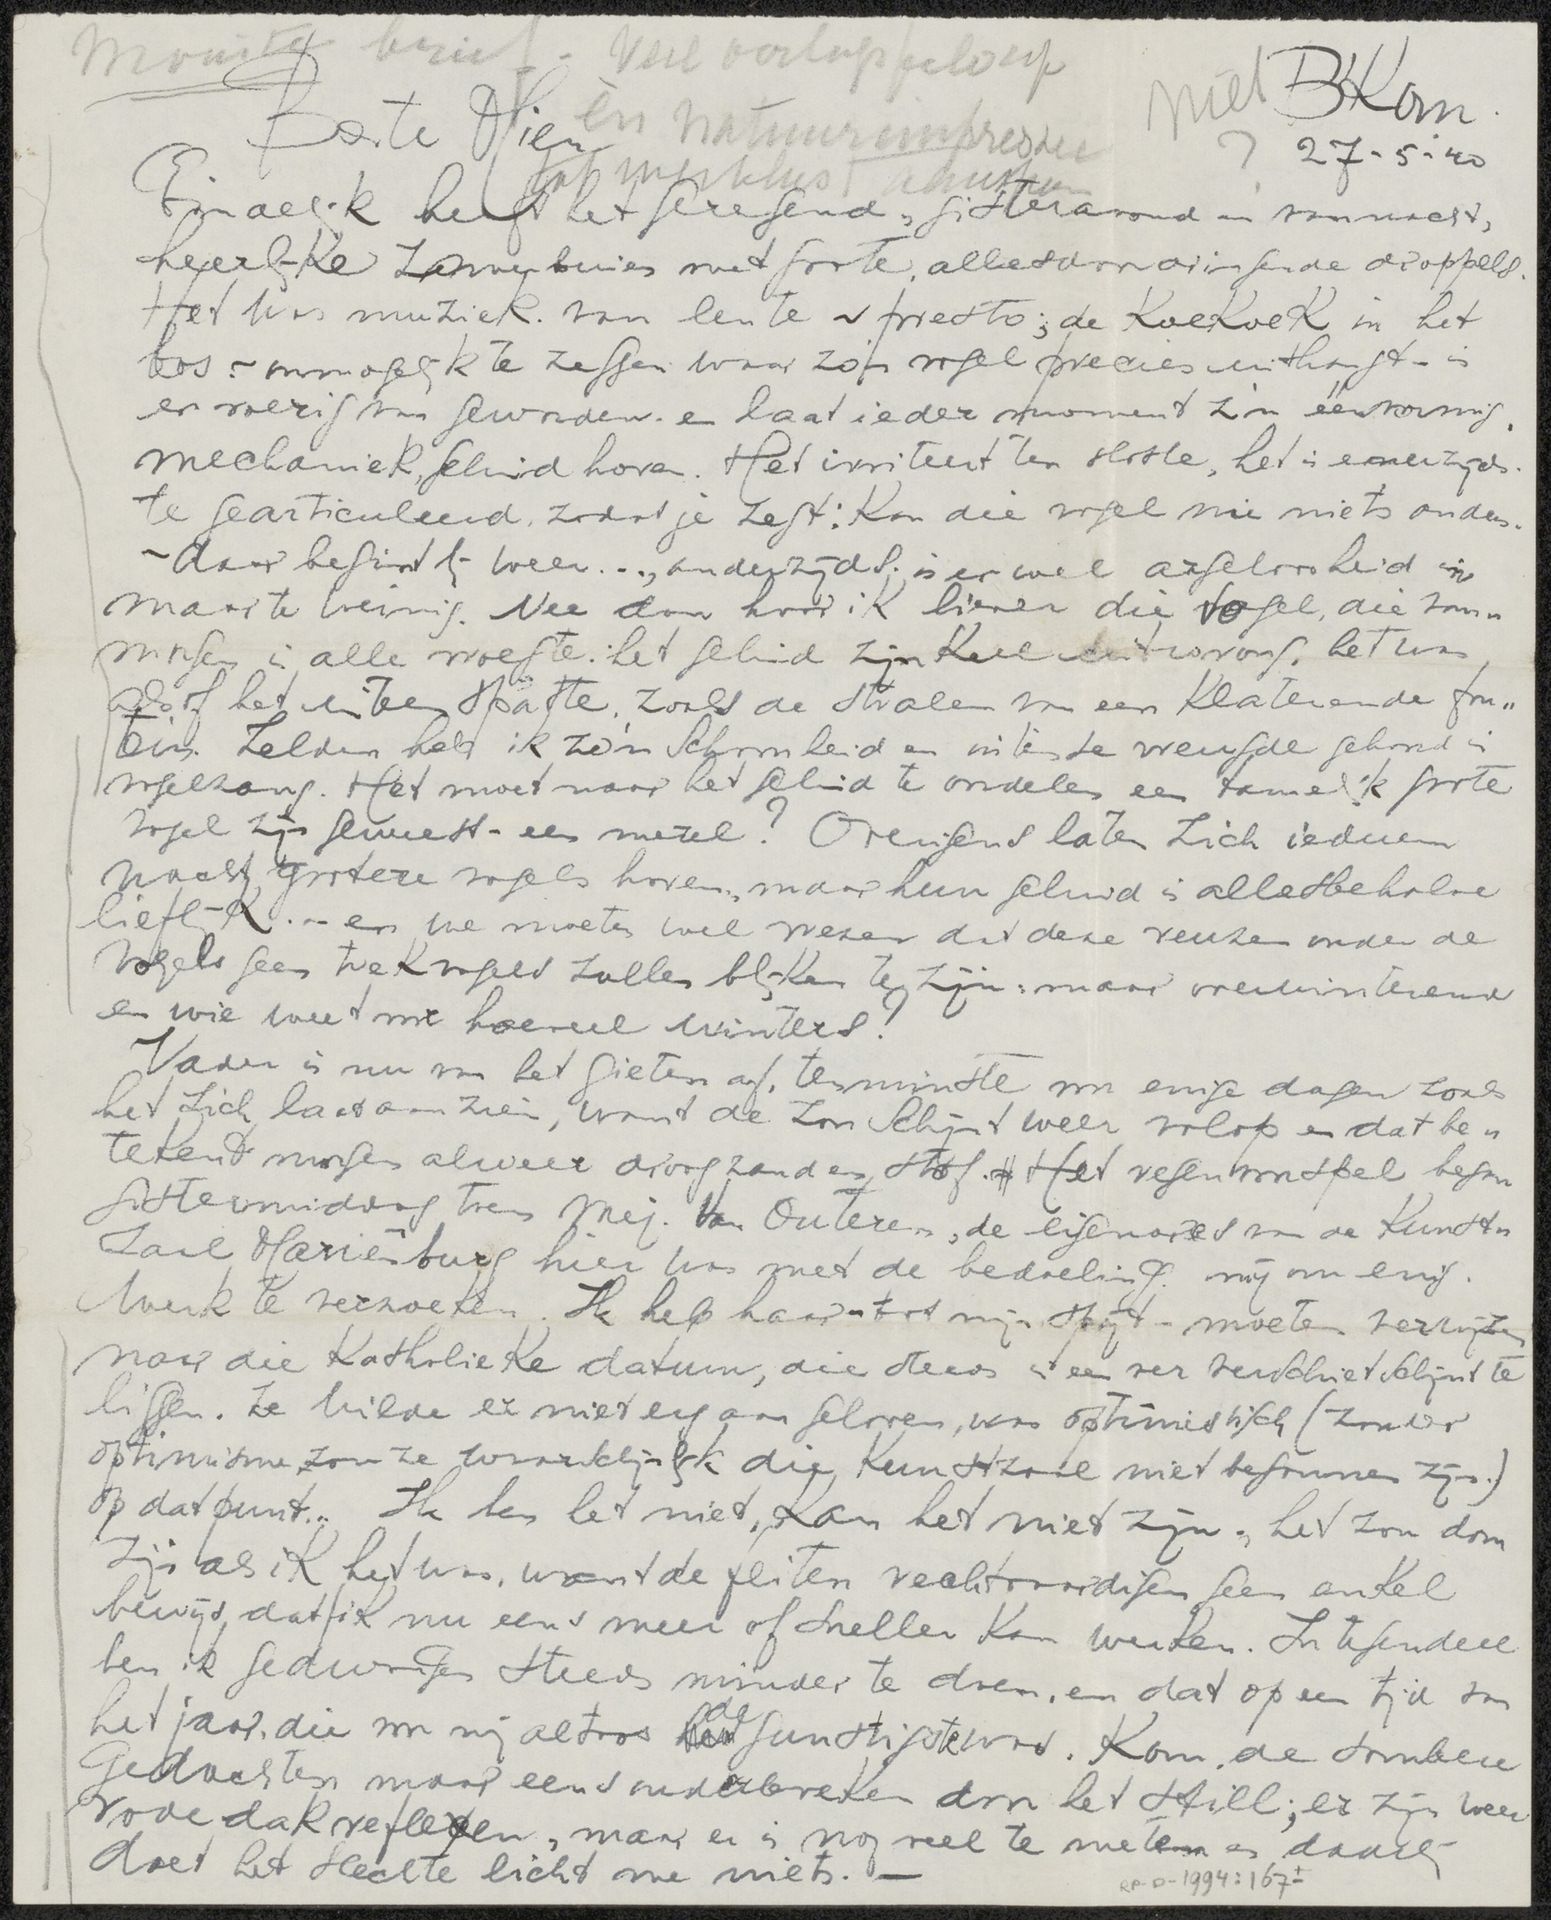 Mooie brief. Veel oorlogsgeloei
en natuurimpressie
niet BKom.
? 27-5-40
Beste Mien
Eindelijk heeft het geregend, gisteravond en vannacht,
heerlijke zomerbuien met grote, allesdoordringende droppels.
Het was muziek van lente presto; de koekoek in het
bos - onmogelijk te zeggen waar zo'n vogel precies uithangt - is
er roerig van geworden en laat ieder moment z'n éénvormig,
mechaniek geluid horen. Het irriteert ten slotte, het is eenerzijds
te gearticuleerd, zodat je zegt: Kan die vogel nu niets anders.
- daar begint hij weer..., anderzijds is er wel argeloosheid in
maar te weinig. Nee dan hoor ik liever die vogel, die van-
morgen in alle vroegte het geluid zijn keel uitwrong, het was
alsof het uiteen spatte, zoals de stralen van een klaterende fon-
tein. Zelden heb ik zo'n schoonheid en intense vreugde gehoord in
vogelzang. Het moet naar het geluid te oordelen een tamelijk grote
vogel zijn geweest - een merel? Overigens laten zich iedere
nacht grotere vogels horen, maar hun geluid is allesbehalve
lieflijk... en we moeten wel vrezen dat deze reuzen onder de
vogels geen trekvogels zullen blijken te zijn: maar overwinterend
en wie weet voor hoeveel winters!
Vader is nu van het gieten af, tenminste voor enige dagen zoals
het zich laat aanzien, want de zon schijnt weer volop en dat be-
tekent morgen alweer droog zand en stof. Het regenvoorspel begon
gistermiddag toen Mej. van Outeren, de eigenares van de Kunst-
zaal Mariënburg hier was met de bedoeling mij om enig
werk te verzoeken. Ik heb haar - tot mijn spijt - moeten verwijzen
naar die Katholieke datum, die steeds in een ver verschiet schijnt te
liggen. Ze wilde er niet erg aan geloven, was optimistisch (zonder
optimisme zou ze waarschijnlijk die Kunstzaal niet begonnen zijn.)
op dat punt... Ik ben het niet, kan het niet zijn, het zou dom
zijn als ik het was, want de feiten rechtvaardigen geen enkel
bewijs, dat ik nu eens meer of sneller kan werken. Integendeel
ben ik gedwongen steeds minder te doen, en dat op een tijd van
het jaar, die voor mij altoos de gunstigste was. Kom, de sombere
gedachten maar eens onderbreken door het still; er zijn weer
rode dakreflexen, maar er is nog veel te meten en daarbij
doet het slechte licht me niets. —
RP-D-1994:167